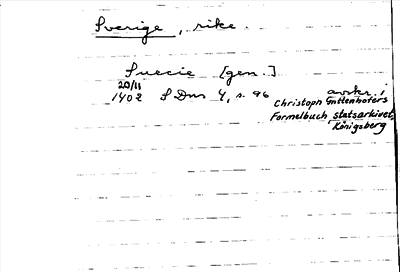 Sverige, rike.
Suecie [gen.]
20/11
1402 SDns 4, s. 96 avskr. i
Christoph Guttenhofers
Formelbuch, statsarkivet,
Königsberg